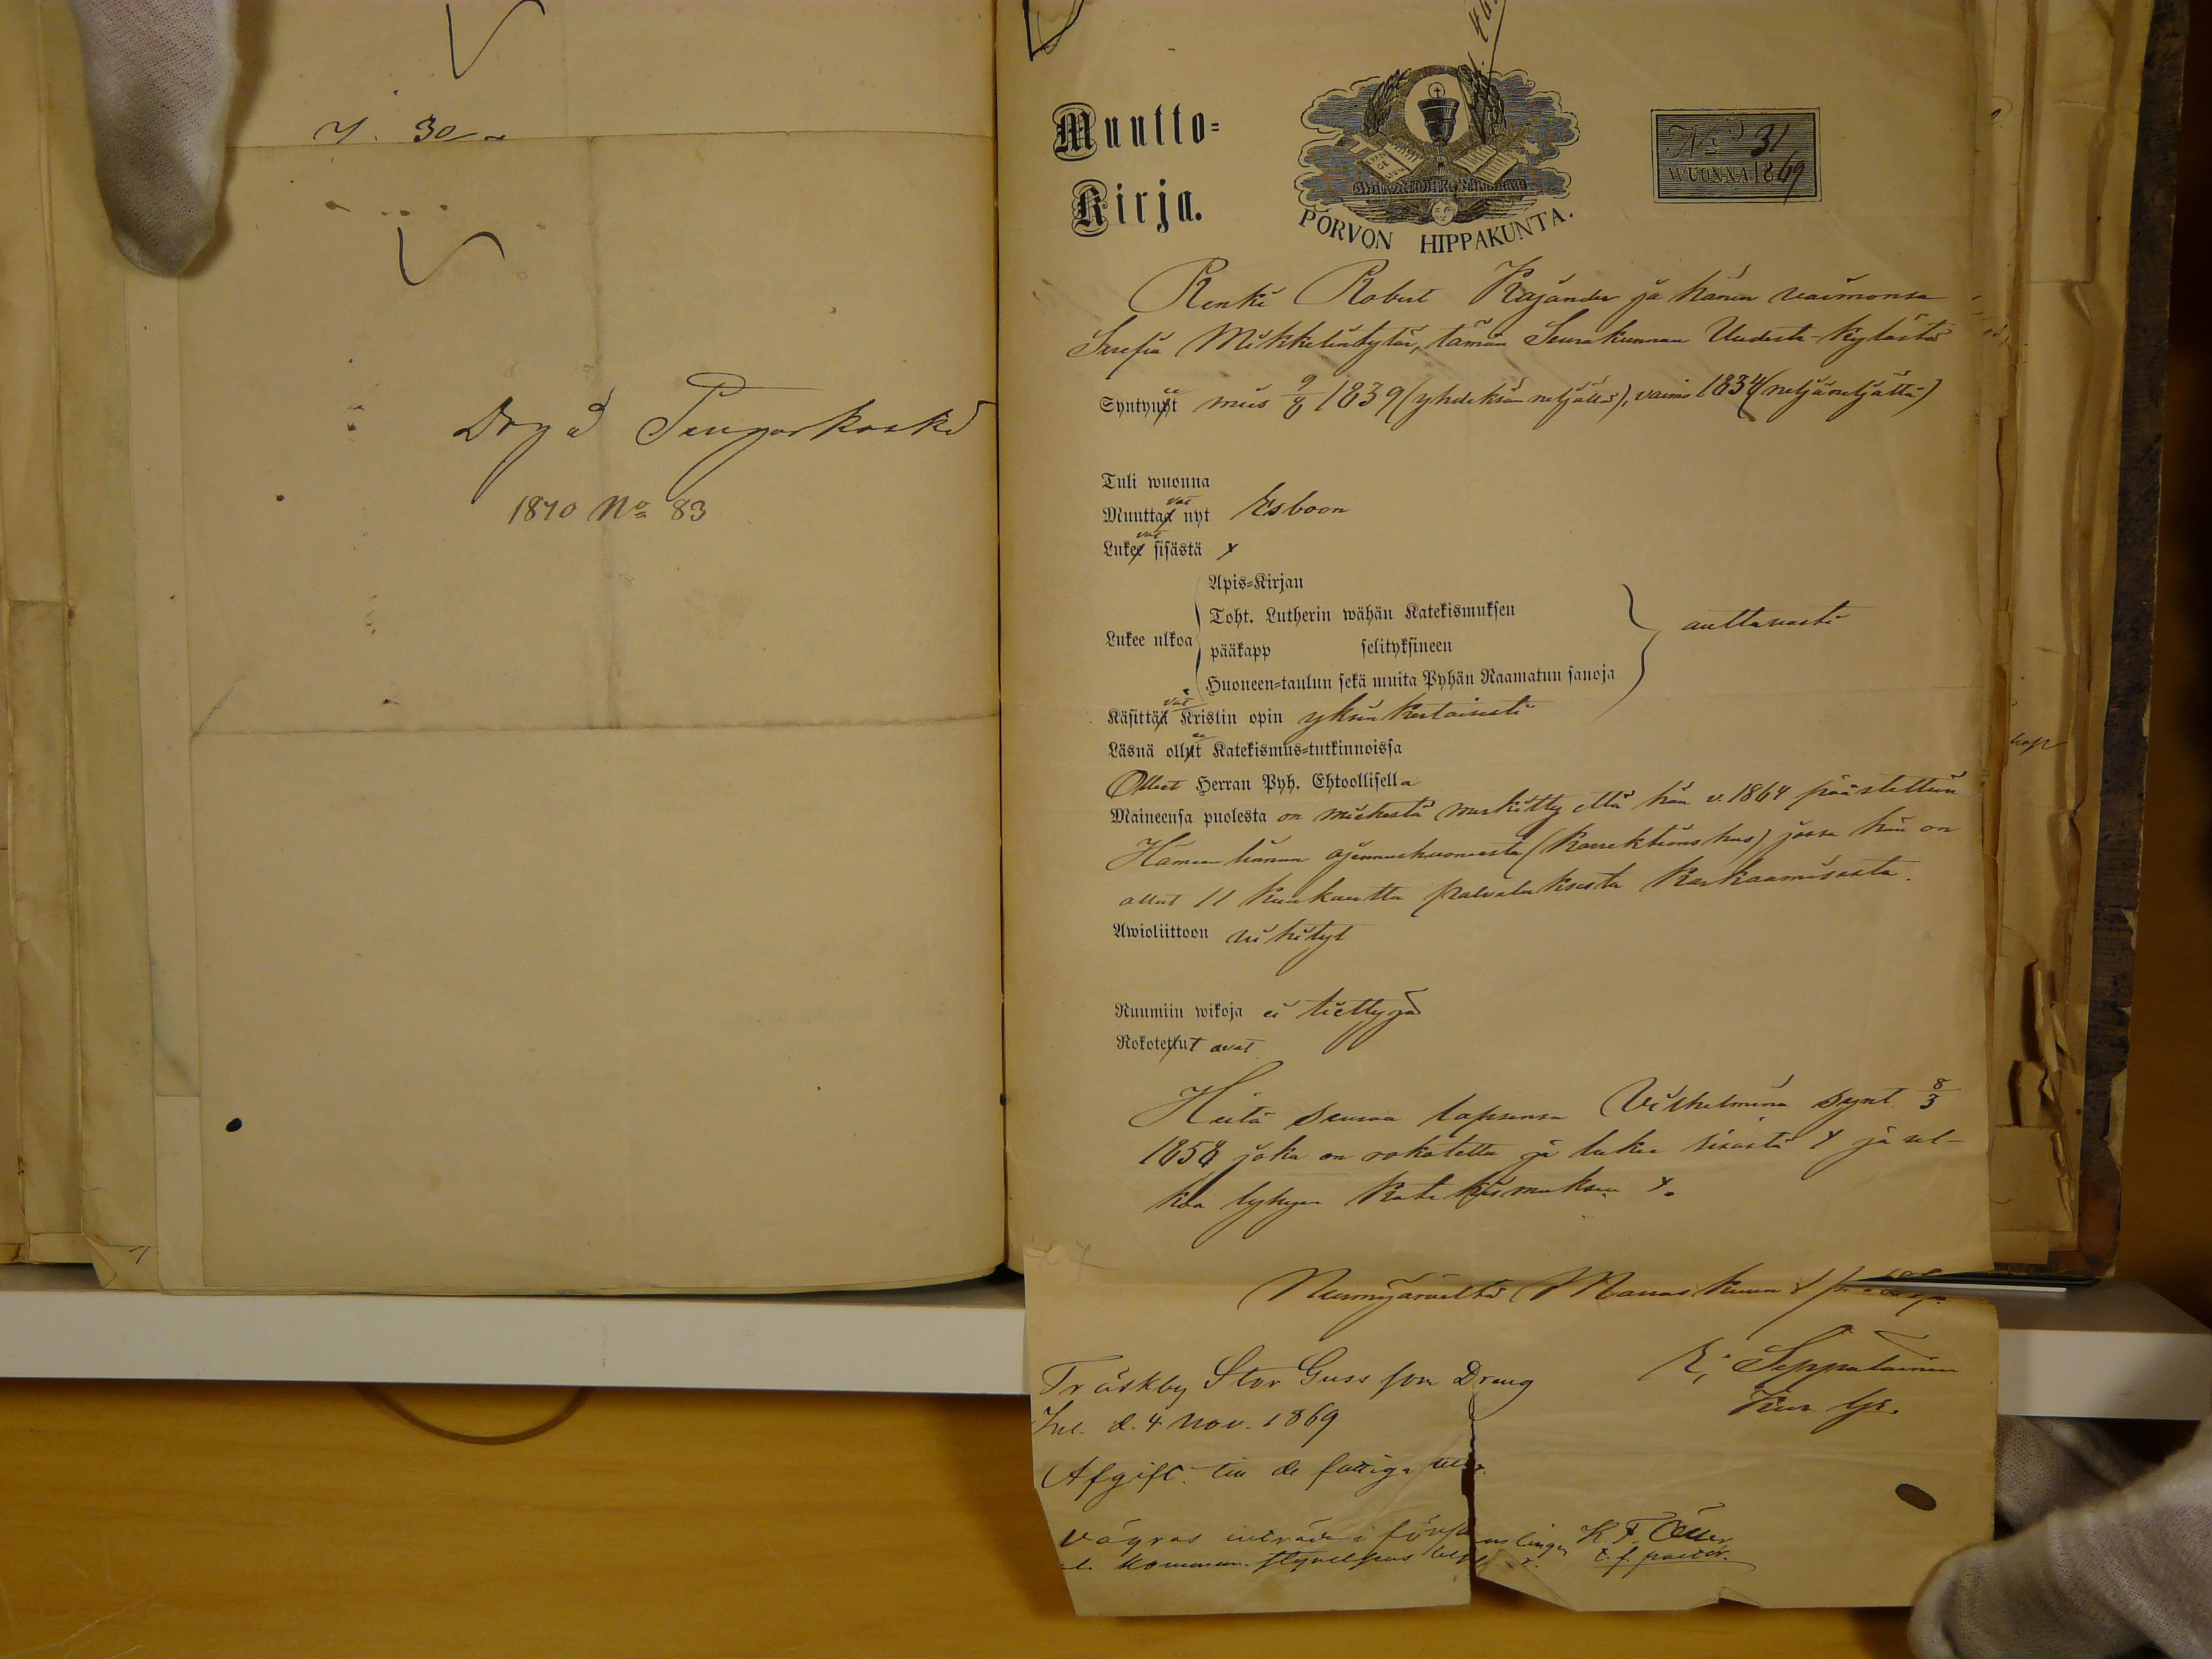 30
Dryd
1870 No 83
Muutto=
Kirja.
PORVON HIPPAKUNTA.
No 31
WUONNA 1869
Renki Robert Kajander ja hänen vaimonsa
Mikkelintytär, tämän Seurakunnan Uudesta-Kylästä
Syntynyet mies 1839 (yhdeksän neljättä), vaimo 1834 (neljä neljättä)
Tuli wuonna
Muuttavat nyt Esboon
Lukevat sisästä
Apis=Kirjan
Toht. Lutherin wähän Katekismuksen
Lukee ulkoa
pääkapp selityksineen
auttavasti
Huoneen=taulun sekä muita Pyhän Raamatun sanoja
Käsittävät Kristin opin yksinkertaisesti
Läsnä olleet Katekismus=tutkinnoissa
Olleet Herran Pyh. Ehtoollisella
Maineensa puolesta on miehestä merkitty että hän v. 1864 päästettiin
Hämeenlinnan ojennushuoneesta (Korrektionshus) jossa hän on
ollut 11 kuukautta palveluksesta karkaamisesta.
Awioliittoon vihityt
Ruumiin wikoja ei tiettyjä
Rokotetut ovat
Heitä seuraa lapsensa Vilhelmina synt. 8/3
1858 joka on rokotettu ja lukee sisästä ja ul-
koa lyhyen Katekismuksen
Nurmijärveltä Marraskuun
E. Seppalainen
Träskby Stor Guss som Dräng
Inl. d. 4 Nov. 1869
Afgift till de fattiga
Vägras inträde i församlingen
t. f. pastor.